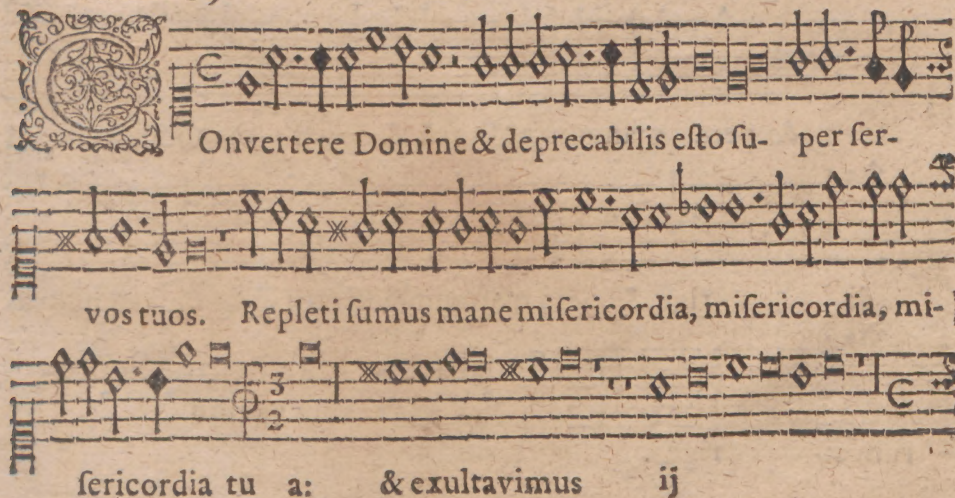 COnvertere Domine & deprecabilis eſto ſu- per ſer-
vos tuos. Repleti ſumus mane miſericordia, miſericordia, mi-
ſericordia tu a: & exultavimus ij